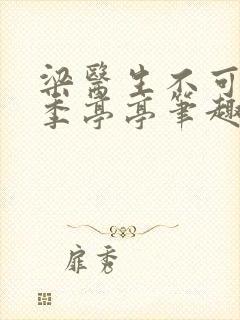 梁醫生不可
季亭亭筆趣
扉秀